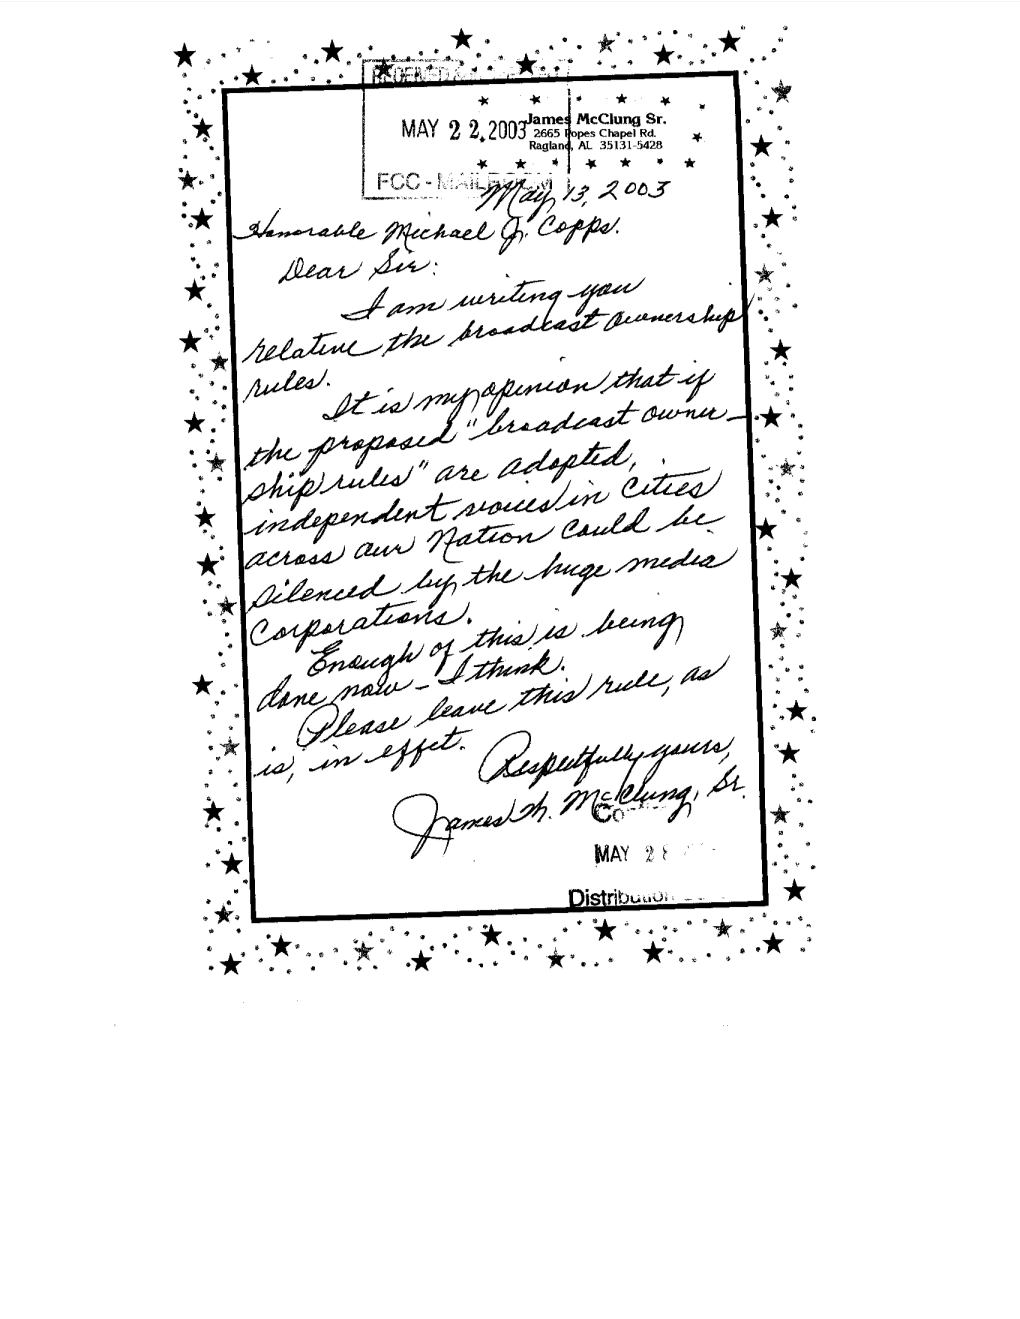 RECEIVED
MAY 22, 2003
FCC - MAILROOM
James McClung Sr.
2665 Popes Chapel Rd.
Ragland, AL 35131-5428
May 13, 2003
Honorable Michael J. Copps.
Dear Sir:
I am writing you
relative the broadcast ownership
rules.
It is my opinion that if
the proposed "broadcast owner-
ship rules" are adopted,
independent voices in cities
across our Nation could be
silenced by the huge media
Corporations.
Enough of this is being
done now - I think.
Please leave this rule, as
is, in effet.
Respectfully yours,
James H. McClung, Sr.
MAY 28
Distribution